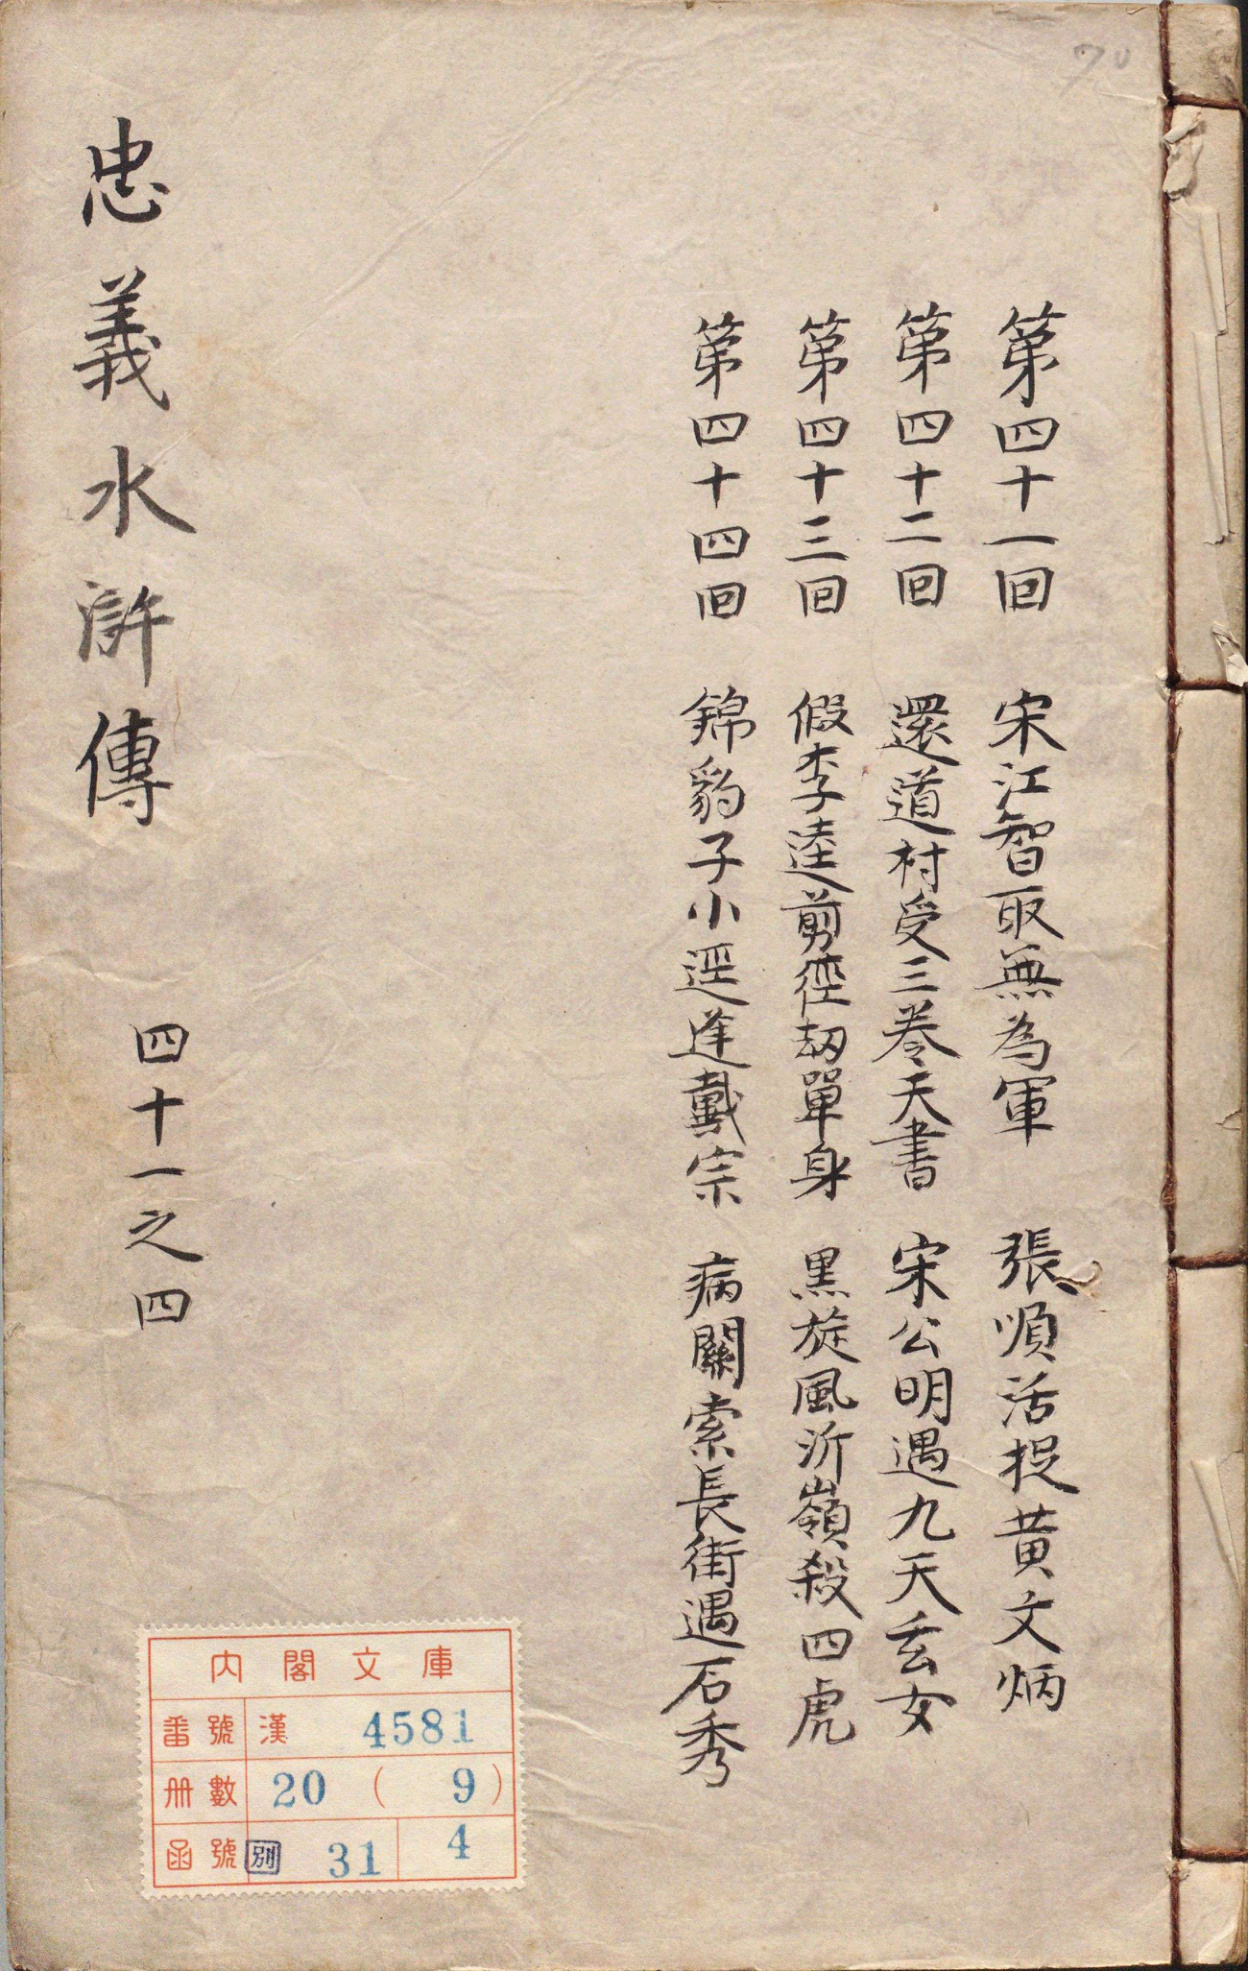 第四十一回 宋江智取無為軍 張順活捉黄文炳
第四十二回 還道村受三卷天書 宋公明遇九天玄女
第四十三回 假李逵剪徑劫單身 黒旋風沂嶺殺四虎
第四十四回 錦豹子小逕逢戴宗 病關索長街遇石秀
忠義水滸傳 四十一之四
70
内閣文庫
番號 漢 4581
冊數 20 ( 9 )
函號 別 31 4